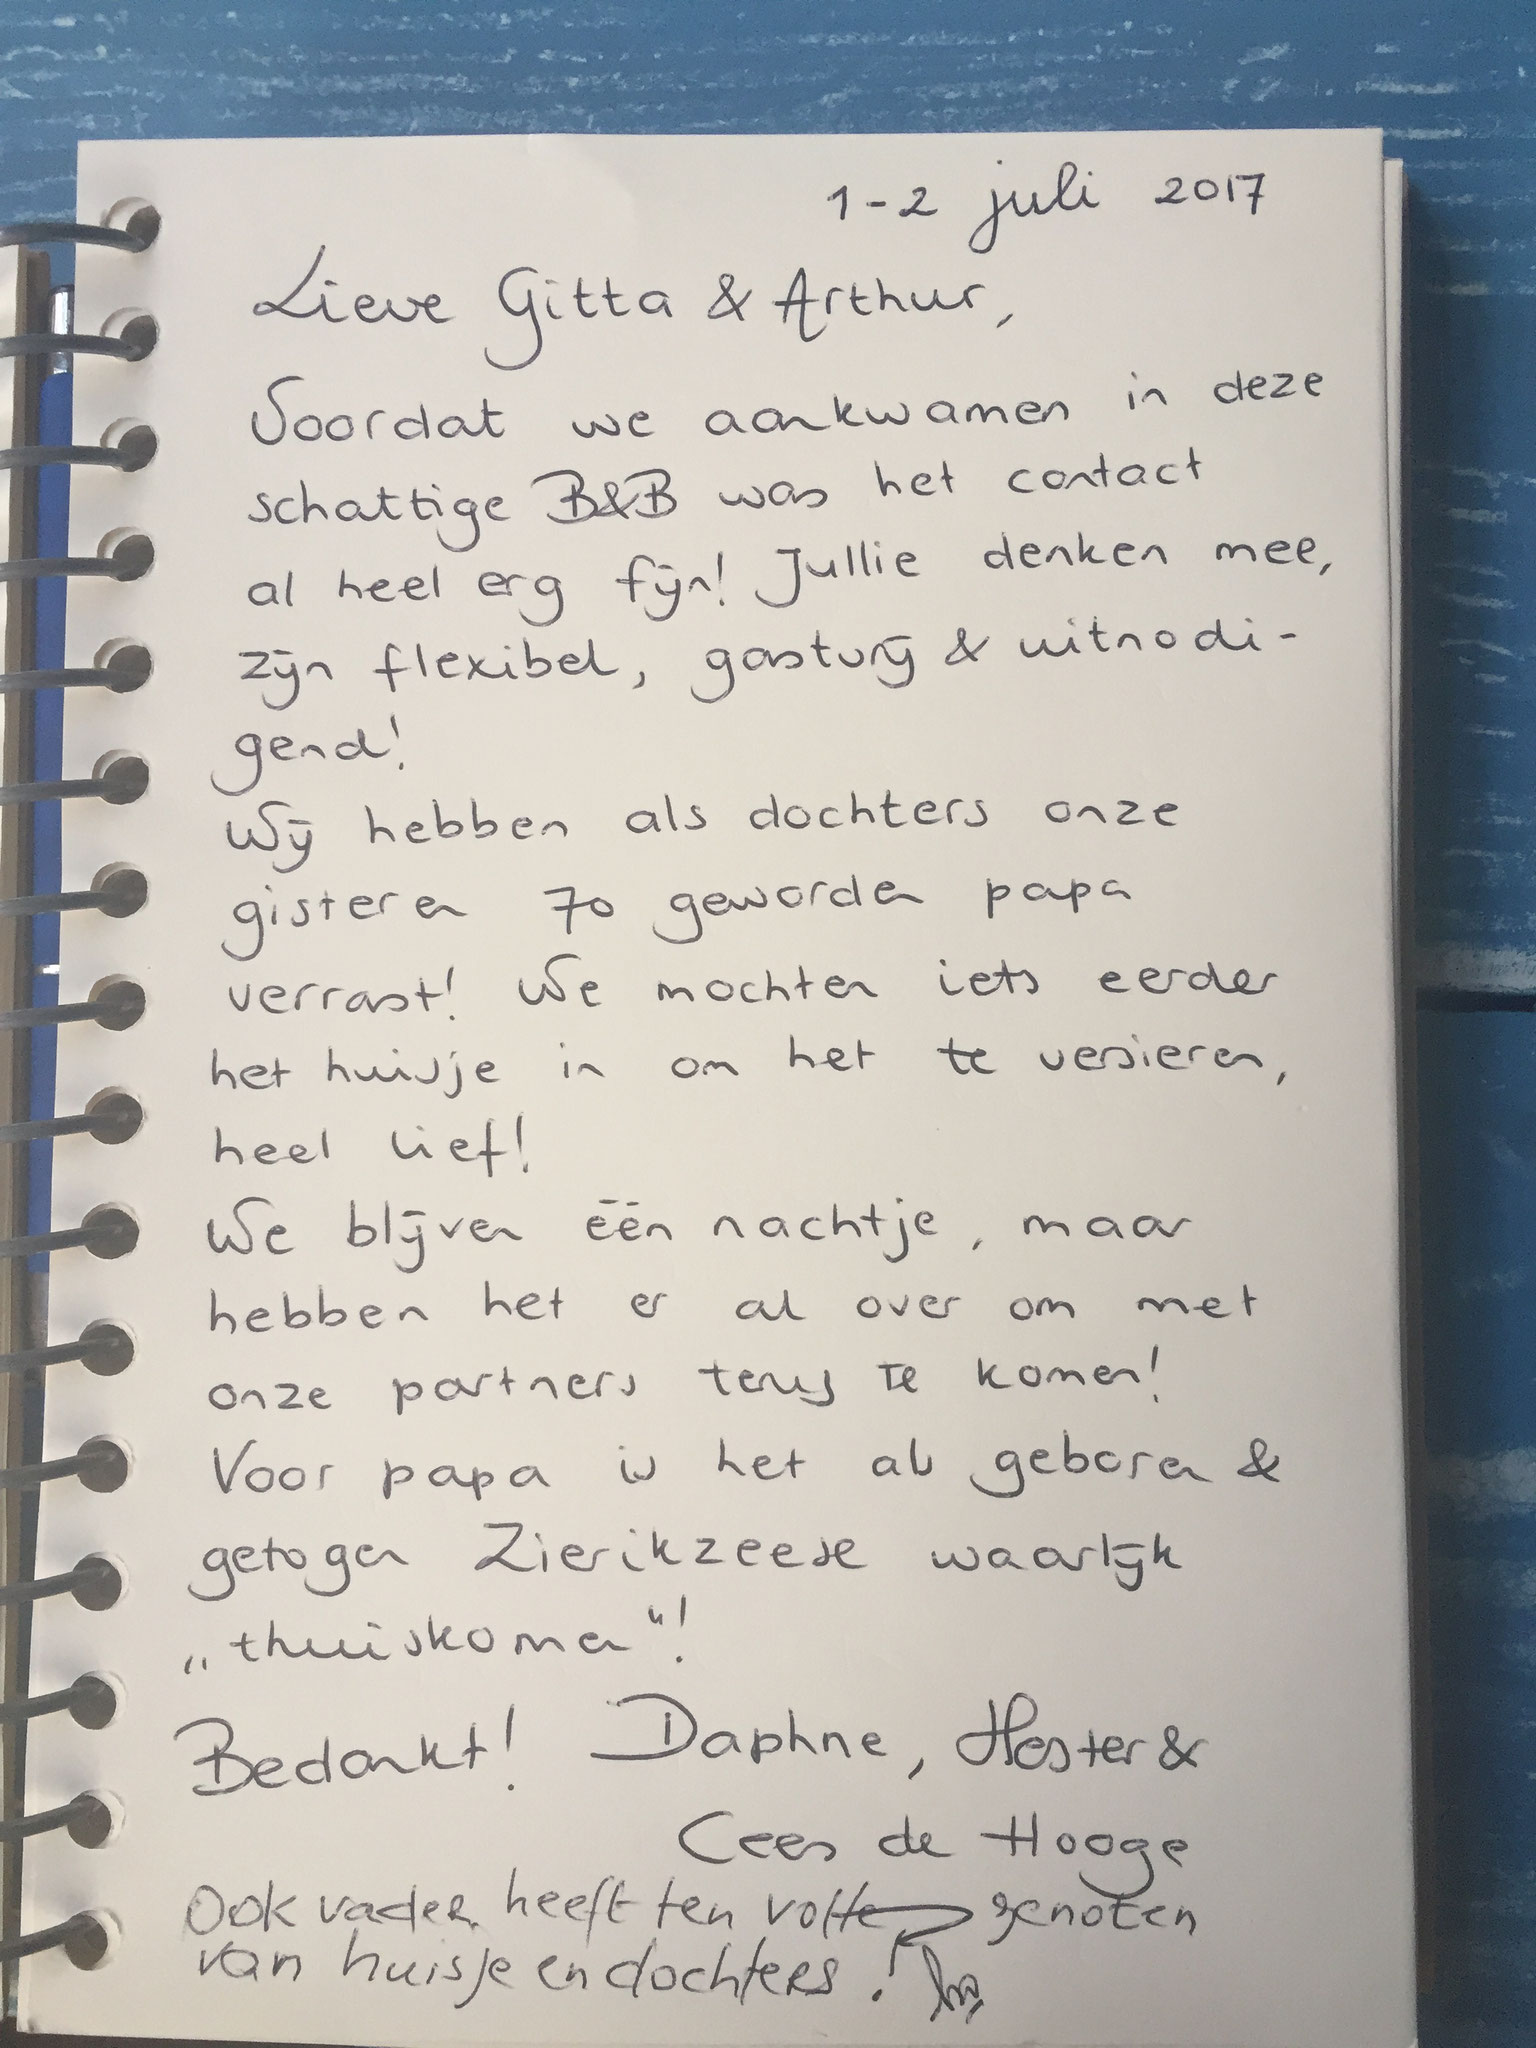 1-2 juli 2017
Lieve Gitta & Arthur,
Voordat we aankwamen in deze
schattige B&B was het contact
al heel erg fijn! Jullie denken mee,
zijn flexibel, gastvrij & uitnodi-
gend!
Wij hebben als dochters onze
gisteren 70 geworden papa
verrast! We mochten iets eerder
het huisje in om het te versieren,
heel lief!
We blijven één nachtje, maar
hebben het er al over om met
onze partners terug te komen!
Voor papa is het als geboren &
getogen Zierikzeese waarlijk
„thuiskomen"!
Bedankt! Daphne, Hester &
Cees de Hooge
Ook vader heeft ten volle genoten
van huisje en dochters!